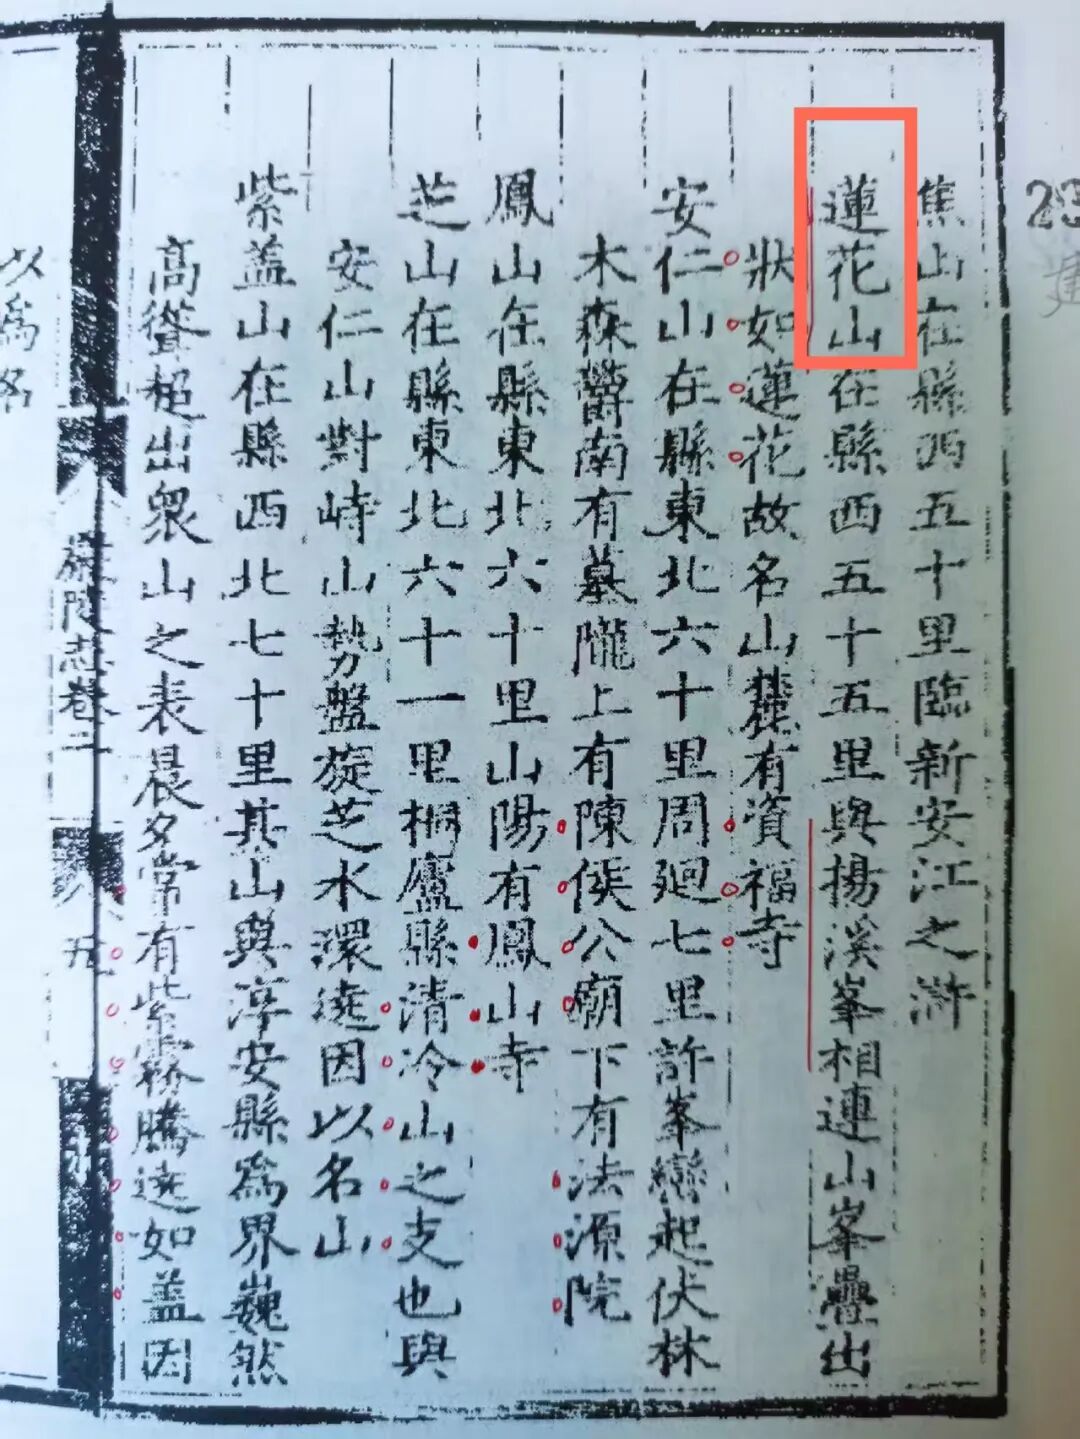 焦山在縣西五十里臨新安江之滸
蓮花山在縣西五十五里與揚溪峯相連山峯疊出
狀如蓮花故名山麓有資福寺
安仁山在縣東北六十里周迴七里許峯巒起伏林
木森欝南有墓隴上有陳侯公廟下有法源院
鳳山在縣東北六十里山陽有鳳山寺
芝山在縣東北六十一里桐廬縣清冷山之支也與
安仁山對峙山勢盤旋芝水環遶因以名山
紫蓋山在縣西北七十里其山與淳安縣為界巍然
高聳超出衆山之表晨夕常有紫霧騰遶如蓋因
嚴陵志卷二
九
以為名
23
蓮